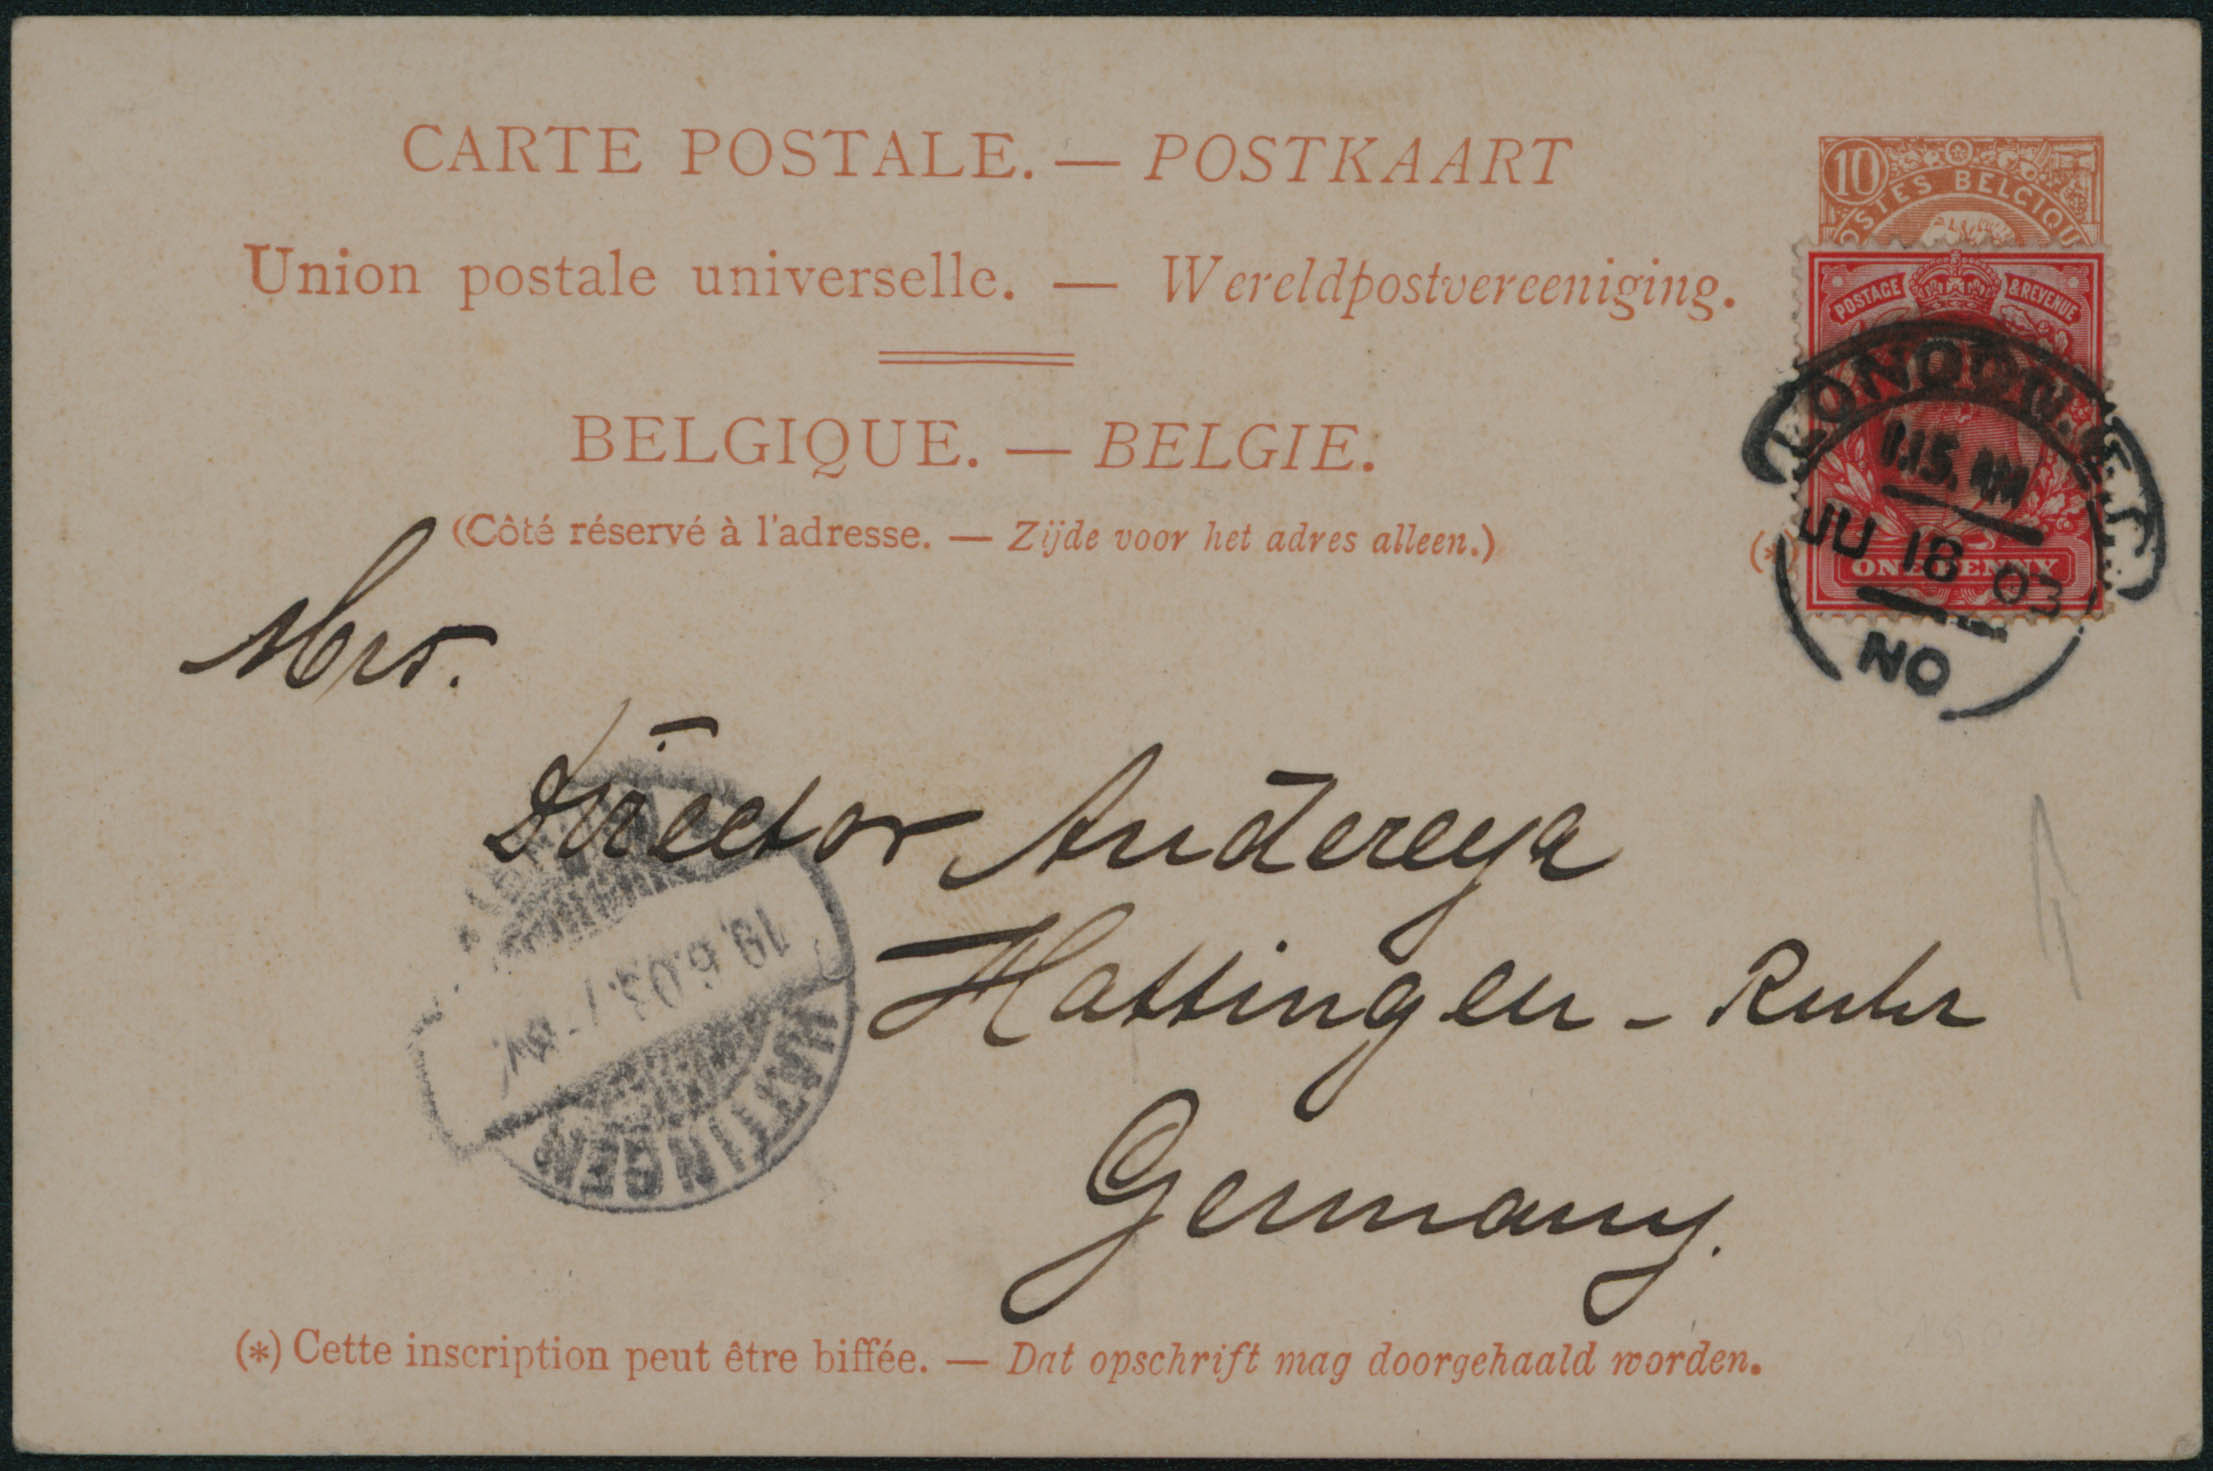 CARTE POSTALE. — POSTKAART
Union postale universelle. — Wereldpostvereeniging.
BELGIQUE. — BELGIE.
(Côté réservé à l'adresse. — Zijde voor het adres alleen.)
10
POSTES BELGIQUE
POSTAGE & REVENUE
ONE PENNY
LONDON. W.C
1.15. AM
JU 18 03
NO
(*)
Mrs.
Director Andereya
Hattingen - Ruhr
Germany.
19.6.03. 7-8V.
HATTINGEN
(*) Cette inscription peut être biffée. — Dat opschrift mag doorgehaald worden.